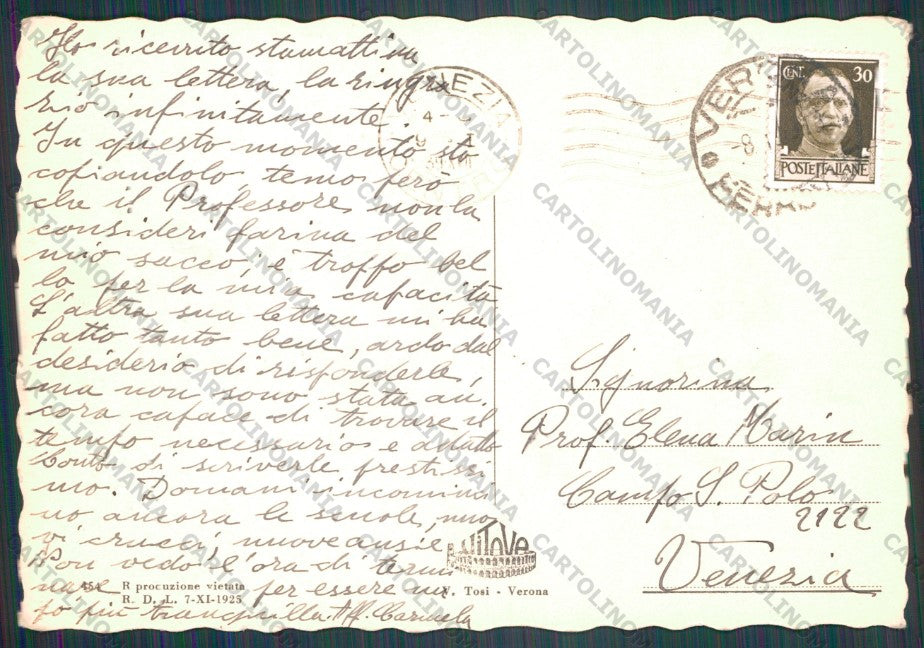 Ho ricevuto stamattina
la sua lettera, la ringra
zio infinitamente.
In questo momento sto
copiandolo temo però
che il Professore non la
consideri farina del
mio sacco, è troppo bel
la per la mia capacità
L'altra sua lettera mi ha
fatto tanto bene, ardo dal
desiderio di risponderle,
ma non sono stata an,
cora capace di trovare il
tempo necessario e adatto
Conto di scriverle prestissi
mo. Domani incomincia
no ancora le scuole, nuo
vi crucci, nuove ansie
Non vedo l'ora di termi
nare per essere un
pò più tranquilla Aff.
VENEZIA
VERONA
CENT. 30
POSTE ITALIANE
Signorina
Prof. Elena Marin
Campo S. Polo
2122
Venezia
454 R procuzione vietata
R. D. L. 7-XI-1925
VITOVE
V. Tosi - Verona
CARTOLINOMANIA